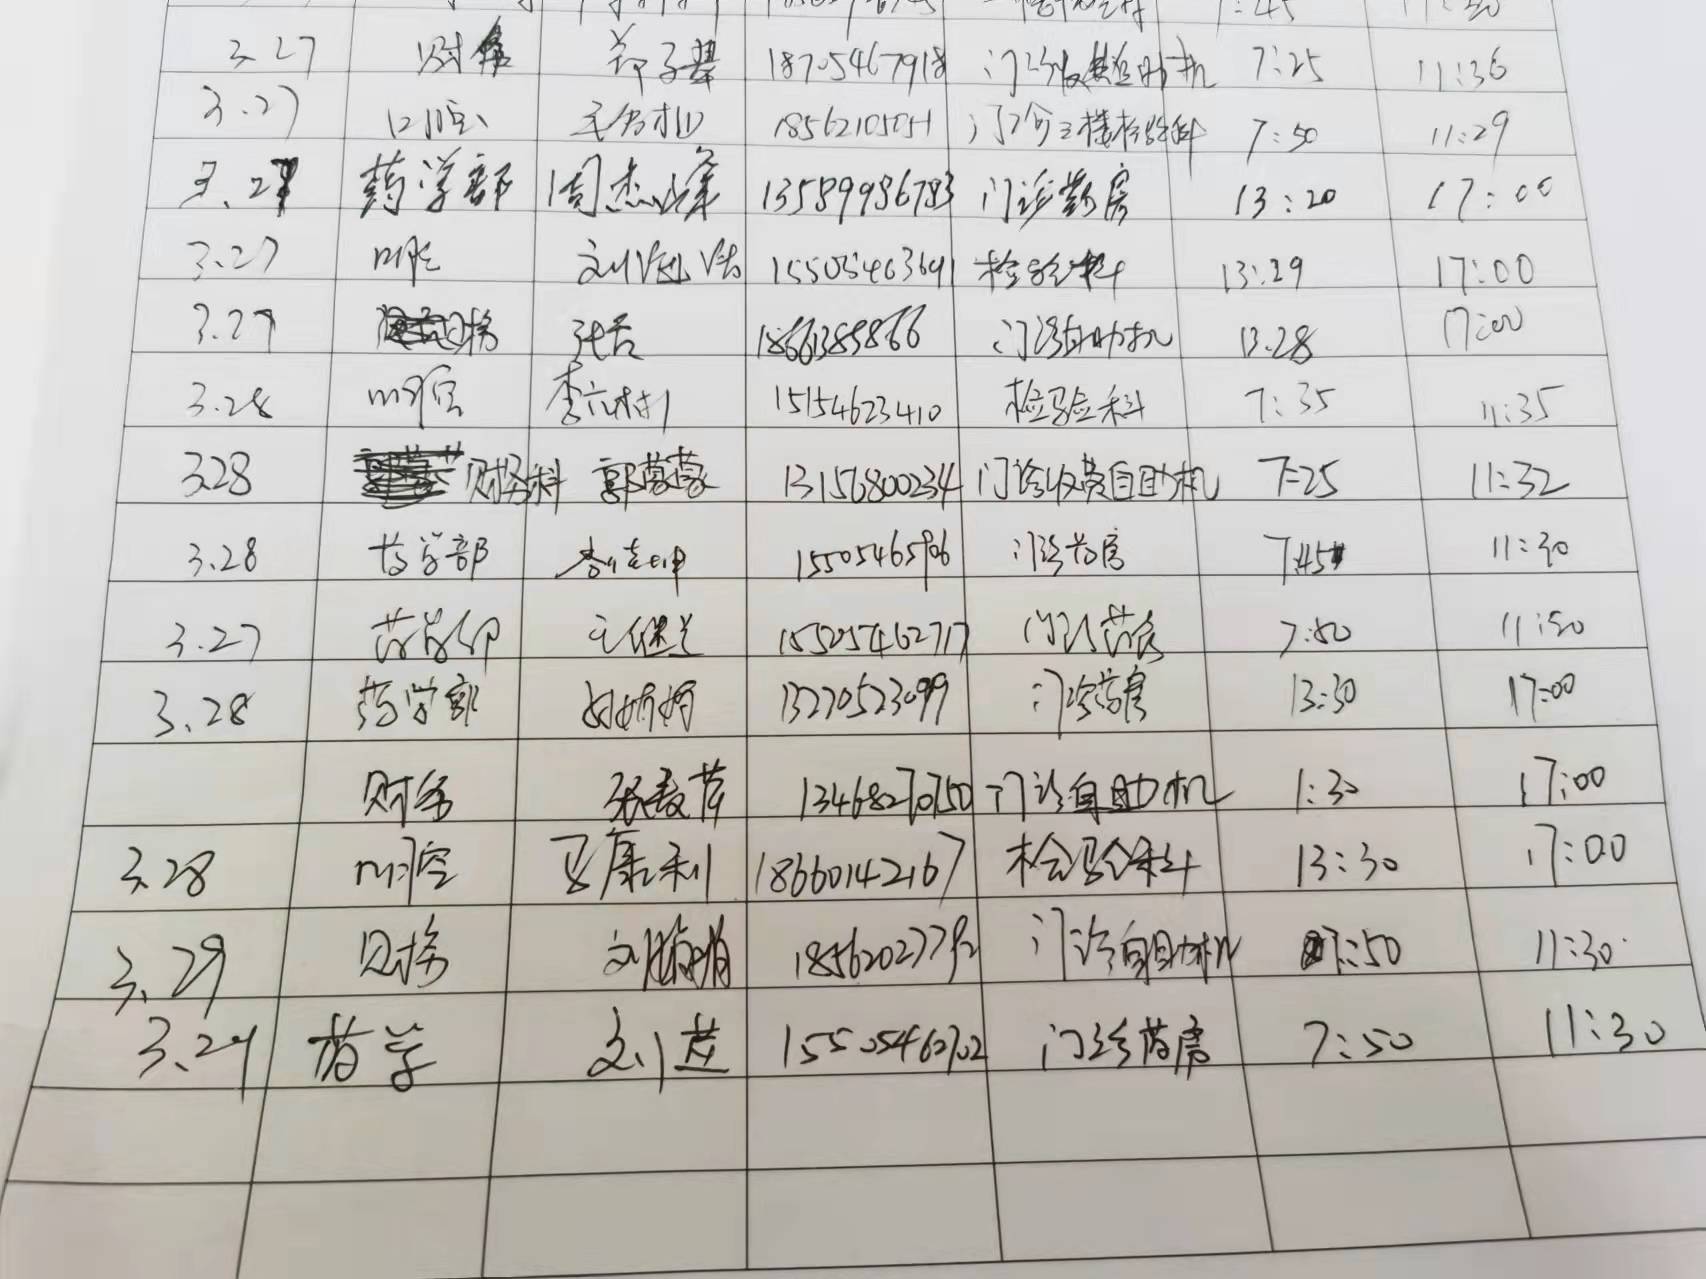 3.27 财务 郑子群 18705467918 门诊收费自助机 7:25 11:36
3.27 口腔 18562105051 门诊三楼检验科 7:50 11:29
3.27 药学部 周杰峰 13589986783 门诊药房 13:20 17:00
3.27 口腔 刘 15505463691 检验科 13:29 17:00
3.27 财务 张 门诊自助机 13.28 17:00
3.28 口腔 李 15154623410 检验科 7:35 11:35
3.28 财务科 郭蒙蒙 13156800234 门诊收费自助机 7:25 11:32
3.28 药学部 李 15505465906 门诊药房 7:45 11:30
3.27 药学部 王继兰 15505462717 门诊药房 7:50 11:30
3.28 药学部 13220523099 门诊药房 13:30 17:00
财务 13468270750 门诊自助机 1:30 17:00
3.28 口腔 马康利 18660142167 检验科 13:30 17:00
3.29 财务 刘娟娟 门诊自助机 7:50 11:30
3.29 药学 刘 15505462702 门诊药房 7:50 11:30